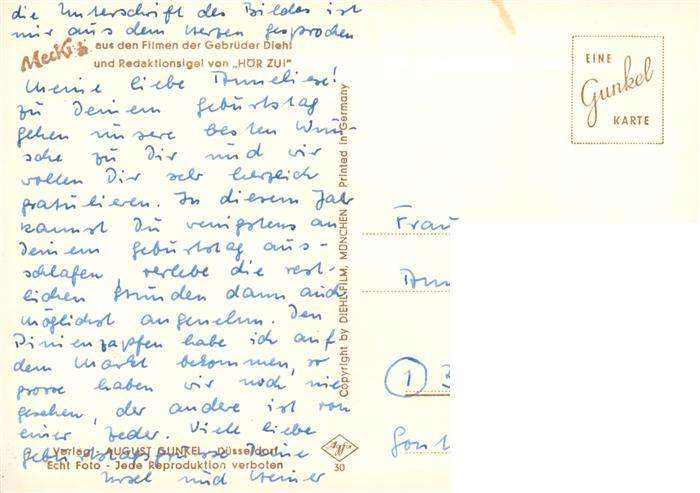 die Unterschrift des Bildes ist
mir aus dem Herzen gesprochen
Mecki
aus den Filmen der Gebrüder Diehl
und Redaktionsigel von „HÖR ZU!"
Meine liebe Anneliese!
Zu Deinem Geburtstag
gehen unsere besten Wün-
sche zu Dir und wir
wollen Dir sehr herzlich
gratulieren. In diesem Jahr
kannst Du wenigstens an
Deinem Geburtstag aus-
schlafen, verlebe die rest-
lichen Stunden dann auch
möglichst angenehm. Den
Pinienzapfen habe ich auf
dem Markt bekommen, so
grosse haben wir noch nie
gesehen, der andere ist von
einer Zeder. Viele liebe
Geburtstagsgrüsse Deine
Ursel und Werner
Verlag - AUGUST GUNKEL - Düsseldorf
Echt Foto - Jede Reproduktion verboten
Copyright by DIEHL-FILM, MÜNCHEN - Printed in Germany
Agfa
30
EINE
Gunkel
KARTE
Frau
1